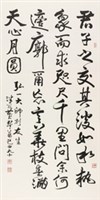 君子之交其淡如水執
象而求咫尺千里問余何
適廓爾忘言華枝春滿
天心月圓
弘一大師